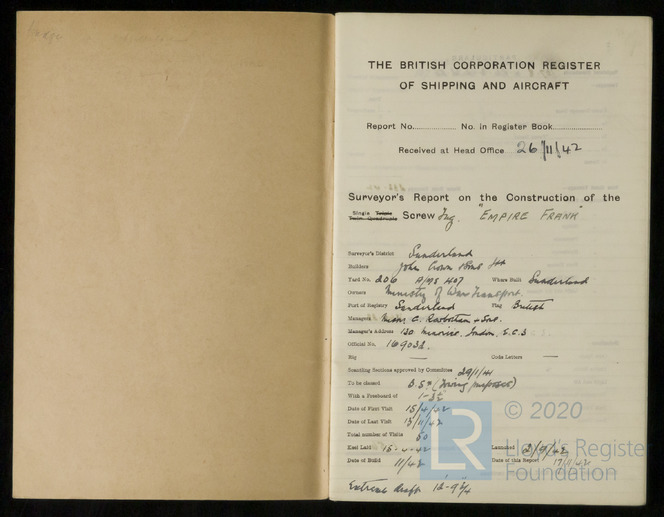 THE BRITISH CORPORATION REGISTER
OF SHIPPING AND AIRCRAFT
Report No. No. in Register Book
Received at Head Office 26/11/42
Surveyor's Report on the Construction of the
Single Triple
Twin Quadruple Screw Tug "EMPIRE FRANK"
Surveyor's District Sunderland
Builders John Crown & Sons Ltd
Yard No. 206 Where Built Sunderland
Owners Ministry of War Transport.
Port of Registry Sunderland Flag British
Managers
Manager's Address 120 Minories, London, E.C.3
Official No. 169032.
Rig — Code Letters —
Scantling Sections approved by Committee 29/1/41
To be classed B.S* (Towing purposes)
With a Freeboard of
Date of First Visit 15/4/42
Date of Last Visit 13/11/42
Total number of Visits 50
Keel Laid 15-4-42 Launched
Date of Build 11/42 Date of this Report 17/11/42
Extreme draft
© 2020
LR
Lloyd's Register
Foundation